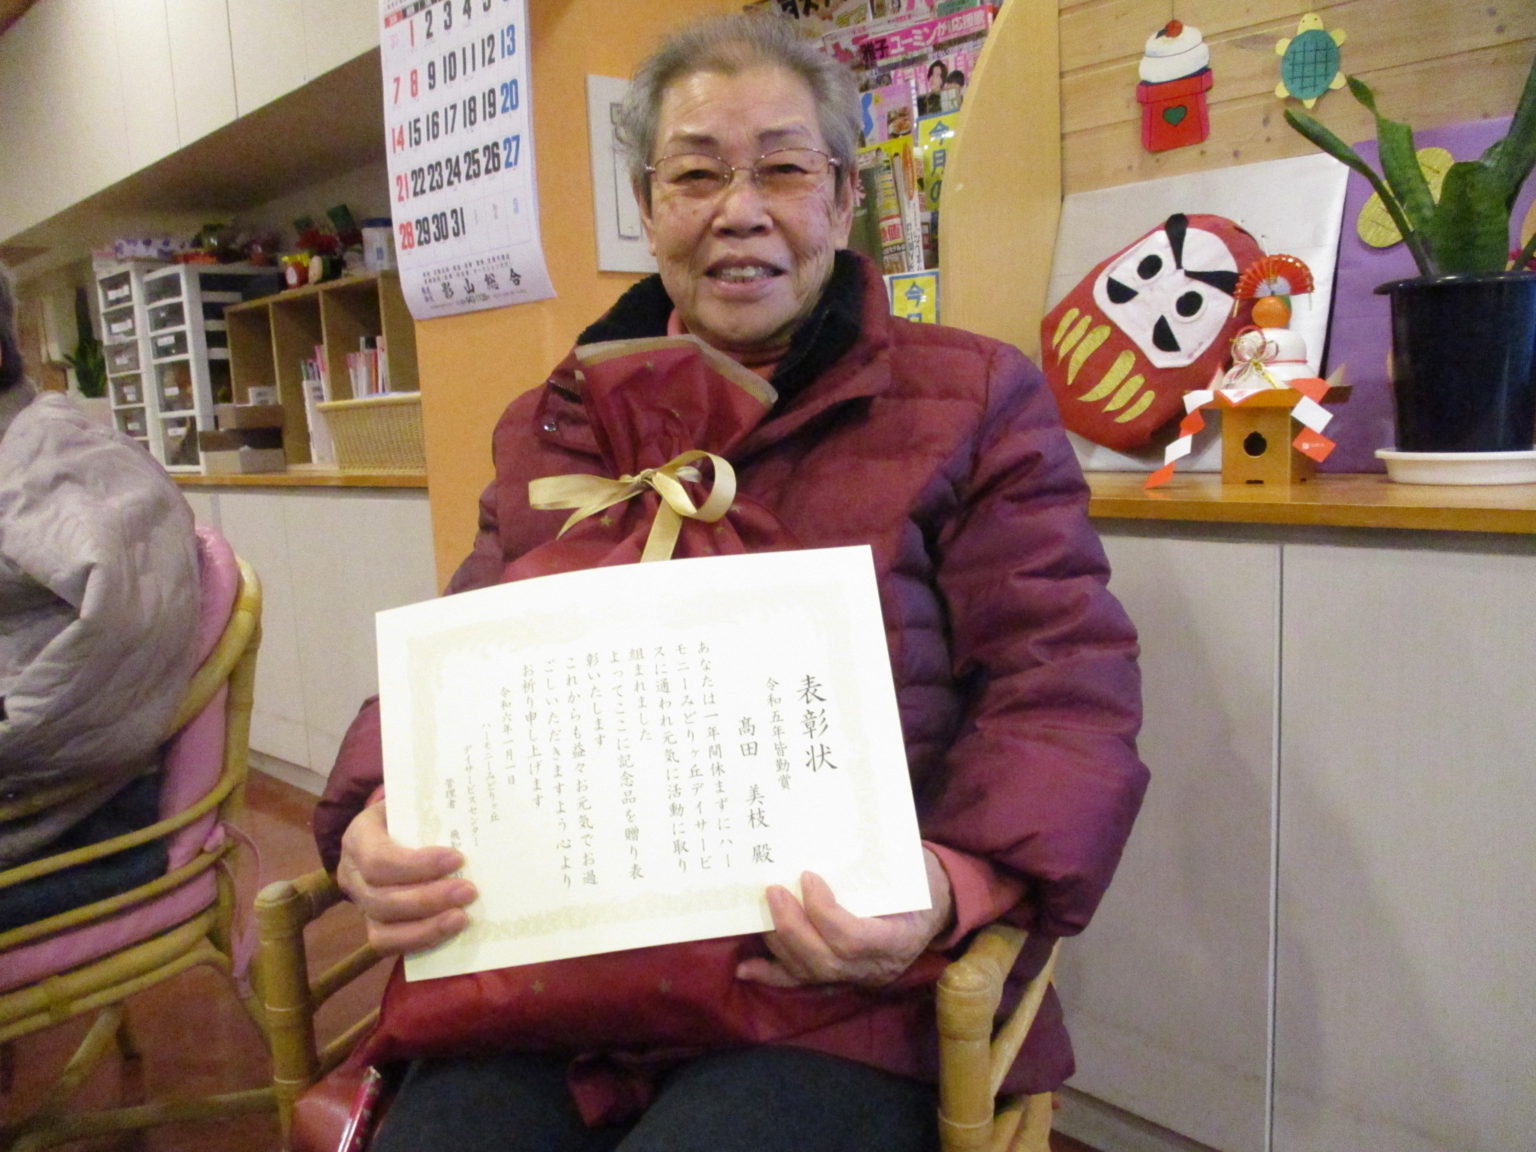 1 2 3 4 5 6
7 8 9 10 11 12 13
14 15 16 17 18 19 20
21 22 23 24 25 26 27
28 29 30 31 1 2 3
影山総合
雅子 ユーミンが応援歌
今月の
今
表彰状
令和五年皆勤賞
髙田 美枝 殿
あなたは一年間休まずにハー
モニーみどりヶ丘デイサービ
スに通われ元気に活動に取り
組まれました
よってここに記念品を贈り表
彰いたします
これからも益々お元気でお過
ごしいただきますよう心より
お祈り申し上げます
令和六年一月一日
ハーモニーみどりヶ丘
デイサービスセンター
管理者